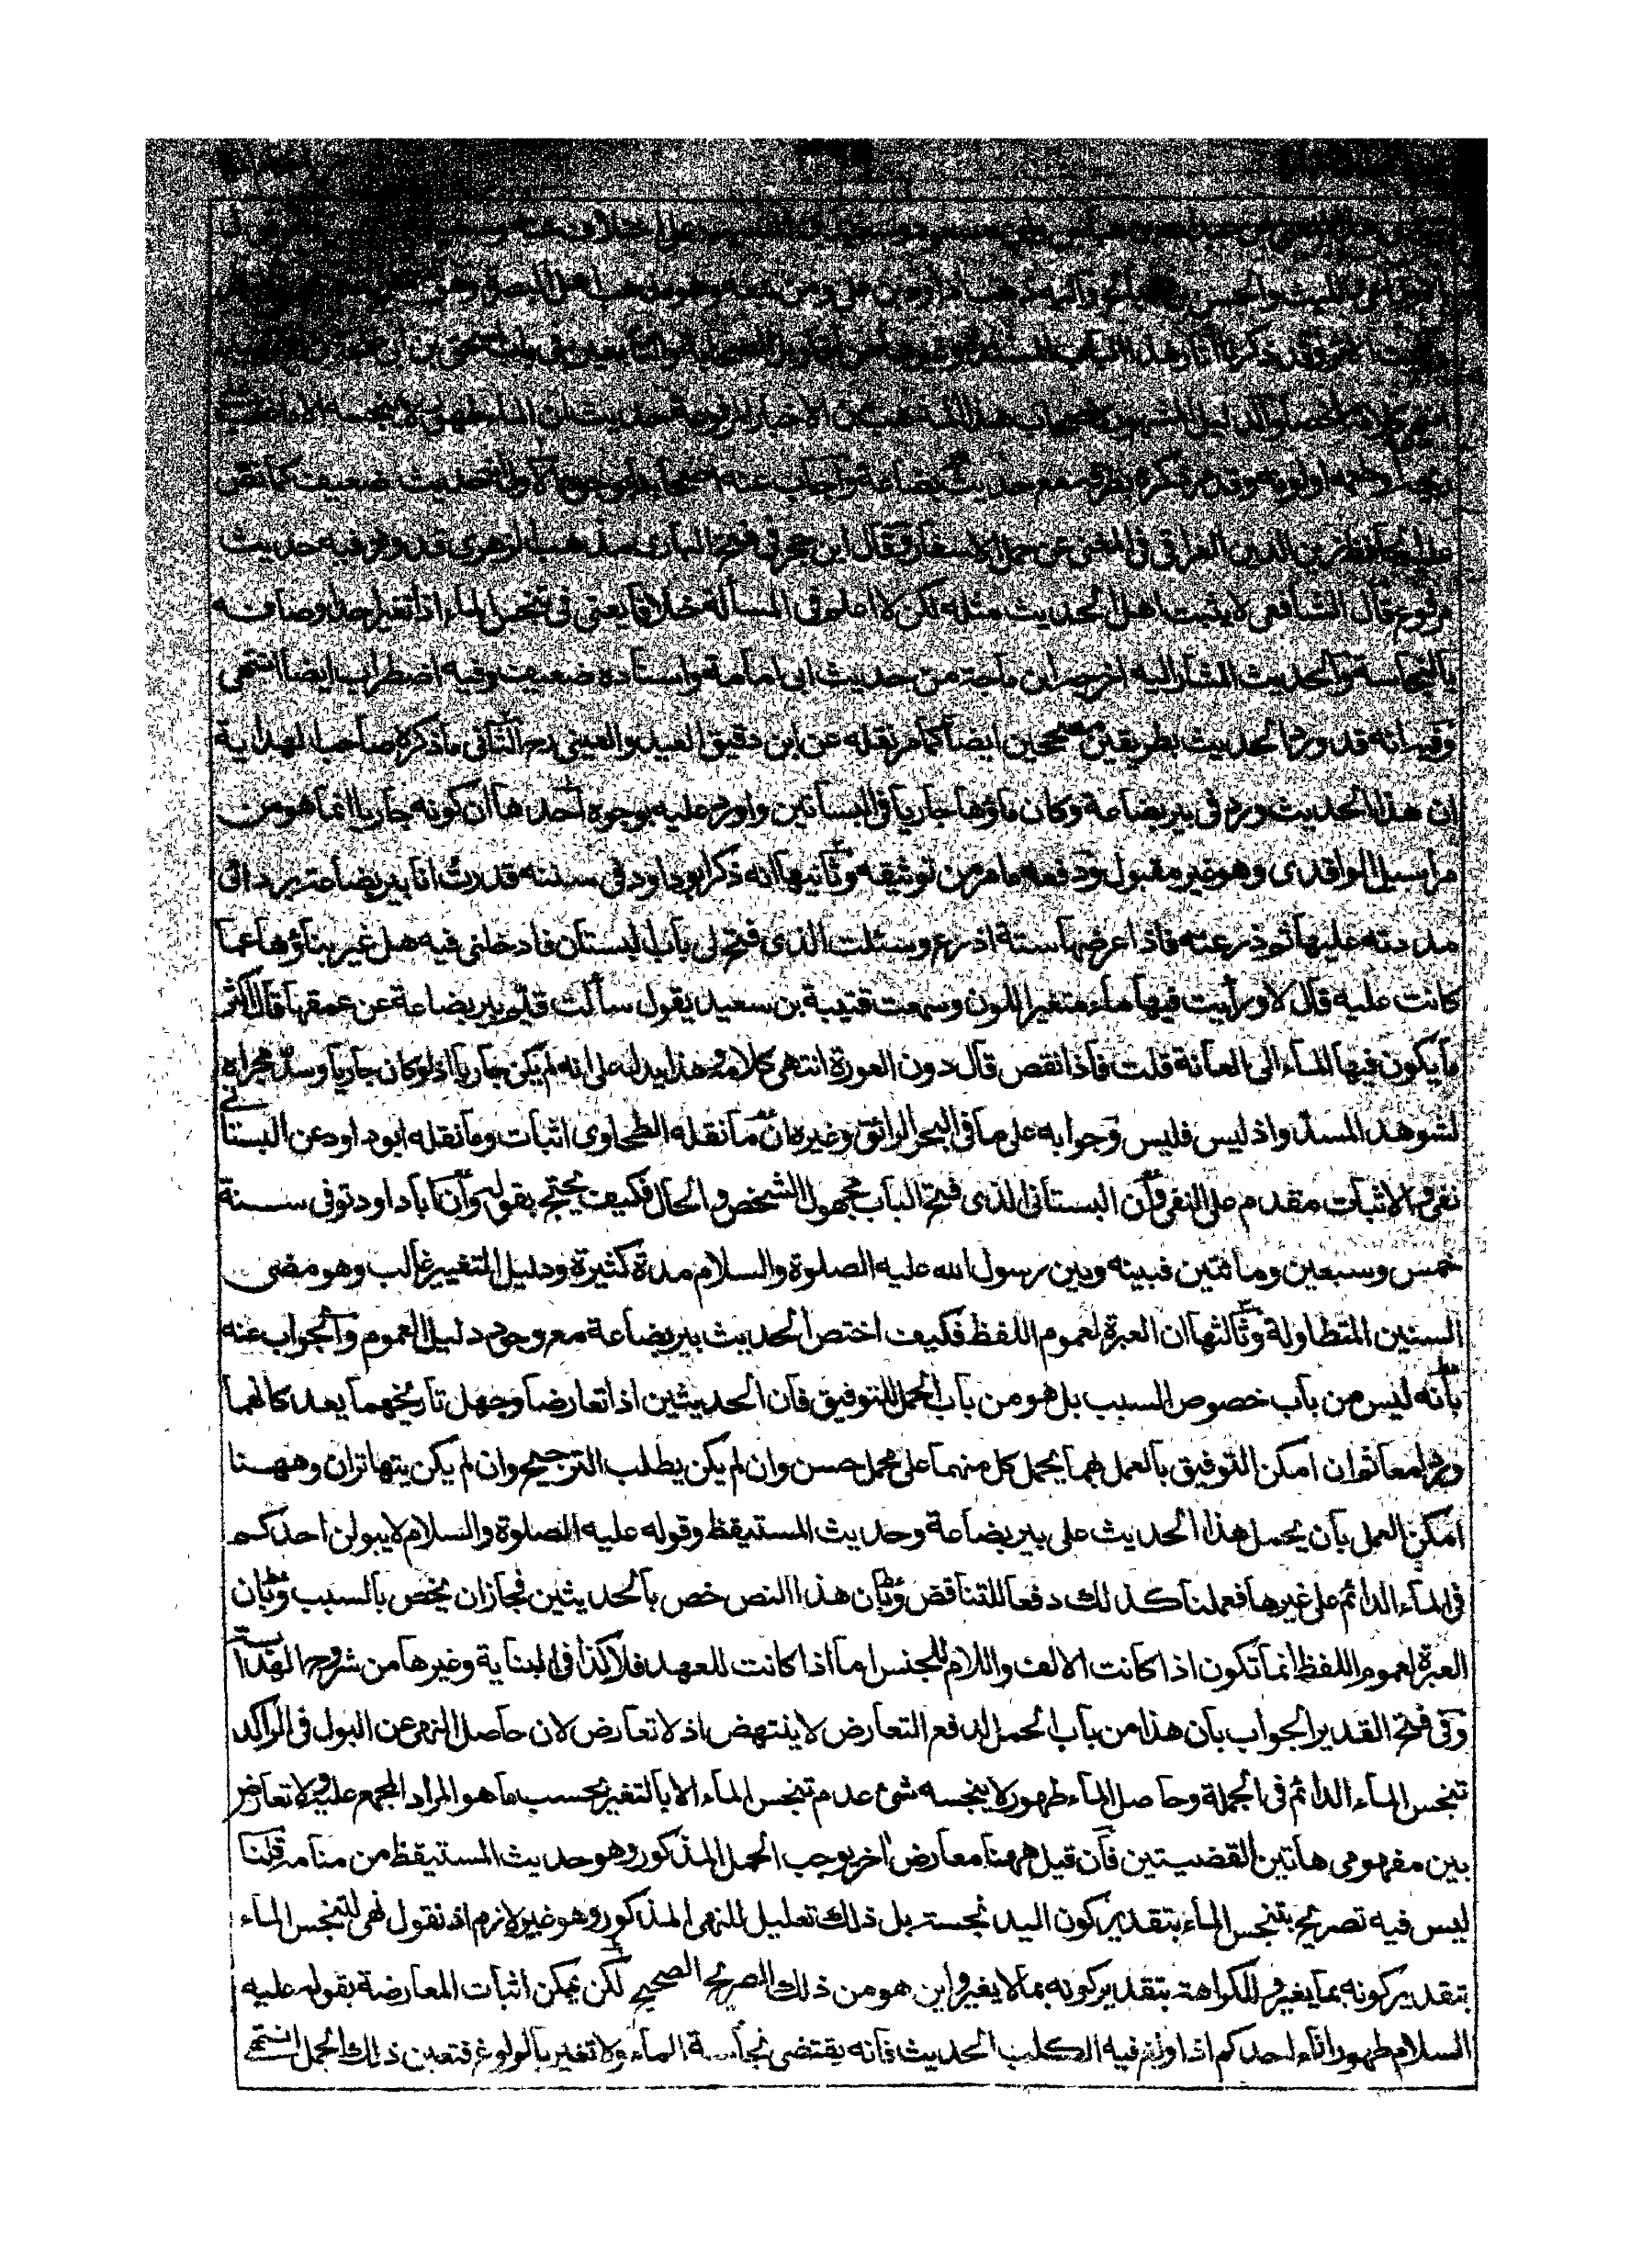 الليث والحسن بن
وقد ذكرنا
حديث ان الماء طهور لا ينجسه الا ما غلب
ريحه او طعمه او لونه وقد مر ذكره بطرقه مع حديث بئر بضاعة واجاب عنه اصحابنا بوجوه الاول ان الحديث ضعيف كما نص
عليه الحافظ زين الدين العراقي في المغني عن حمل الاسفار وقال ابن حجر في فتح الباري مذهب الزهري قد ورد فيه حديث
مرفوع قال الشافعي لا يثبت اهل الحديث مثله لكن لا اعلم في المسألة خلافا يعني في تنجس الماء اذا تغير احد اوصافه
بالنجاسة والحديث المشار اليه اخرجه ابن ماجة من حديث ابي امامة واسناده ضعيف وفيه اضطراب ايضا انتهى
وفيه انه قد ورد الحديث بطريقين صحيحين ايضا كما مر نقله عن ابن دقيق العيد والعيني رحم الثاني ما ذكره صاحب الهداية
ان هذا الحديث ورد في بير بضاعة وكان ماؤها جاريا في البساتين واورد عليه بوجوه احدها ان كونه جاريا انما هو من
مراسيل الواقدي وهو غير مقبول ودفعه ما مر من توثيقه وثانيها انه ذكر ابو داود في سننه قدرت انا بير بضاعة بردائي
مددته عليها ثم ذرعته فاذا عرضها ستة اذرع وسئلت الذي فتح لي باب البستان فادخلني فيه هل غير بناؤها عما
كانت عليه قال لا ورأيت فيها ماء متغير اللون وسمعت قتيبة بن سعيد يقول سألت قيّم بير بضاعة عن عمقها قال اكثر
ما يكون فيها الماء الى العانة قلت فاذا نقص قال دون العورة انتهى كلامه هذا يدل على انه لم يكن جاريا اذ لو كان جاريا وسدّ مجراه
لشوهد المسدّ واذ ليس فليس وجوابه على ما في البحر الرائق وغيره ان ما نقله الطحاوي اثبات وما نقله ابو داود عن البستاني
نفي والاثبات مقدم على النفي وان البستاني الذي فتح الباب مجهول الشخص والحال فكيف يحتج بقوله وان ابا داود توفى سنة
خمس وسبعين ومائتين فبينه وبين رسول الله عليه الصلوة والسلام مدة كثيرة ودليل التغيير غالب وهو مضى
السنين المتطاولة وثالثها ان العبرة لعموم اللفظ فكيف اختص الحديث ببير بضاعة مع وجود دليل العموم والجواب عنه
بانه ليس من باب خصوص السبب بل هو من باب الحمل للتوفيق فان الحديثين اذا تعارضا وجهل تاريخهما يعد كانهما
وردا معا ثم ان امكن التوفيق بالعمل بهما يحمل كل منهما على محمل حسن وان لم يكن يطلب الترجيح وان لم يكن يتهاتران وههنا
امكن العمل بان يحمل هذا الحديث على بير بضاعة وحديث المستيقظ وقوله عليه الصلوة والسلام لا يبولن احدكم
في الماء الدائم على غيرها فعملنا كذلك دفعا للتناقض وبان هذا النص خص بالحديثين فجاز ان يخص بالسبب وبان
العبرة لعموم اللفظ انما تكون اذا كانت الالف واللام للجنس اما اذا كانت للعهد فلا كذا في البناية وغيرها من شروح الهداية
وفي فتح القدير الجواب بان هذا من باب الحمل لدفع التعارض لا ينتهض اذ لا تعارض لان حاصل النهي عن البول في الراكد
تنجس الماء الدائم في الجملة وحاصل الماء طهور لا ينجسه شئ عدم تنجس الماء الا بالتغير بحسب ما هو المراد المجمع عليه ولا تعارض
بين مفهومي هاتين القضيتين فان قيل ههنا معارض اخر يوجب الحمل المذكور وهو حديث المستيقظ من منامه قلنا
ليس فيه تصريح بتنجس الماء بتقدير كون اليد نجسة بل ذلك تعليل للنهي المذكور وهو غير لازم اذ نقول نهى لتنجس الماء
بتقدير كونه بما يغير وللكراهة بتقدير كونه بما لا يغير واين هو من ذلك الصريح الصحيح لكن يمكن اثبات المعارضة بقوله عليه
السلام طهور اناء احدكم اذا ولغ فيه الكلب الحديث فانه يقتضي نجاسة الماء ولا تغير بالولوغ فتعين ذلك الحمل انتهى